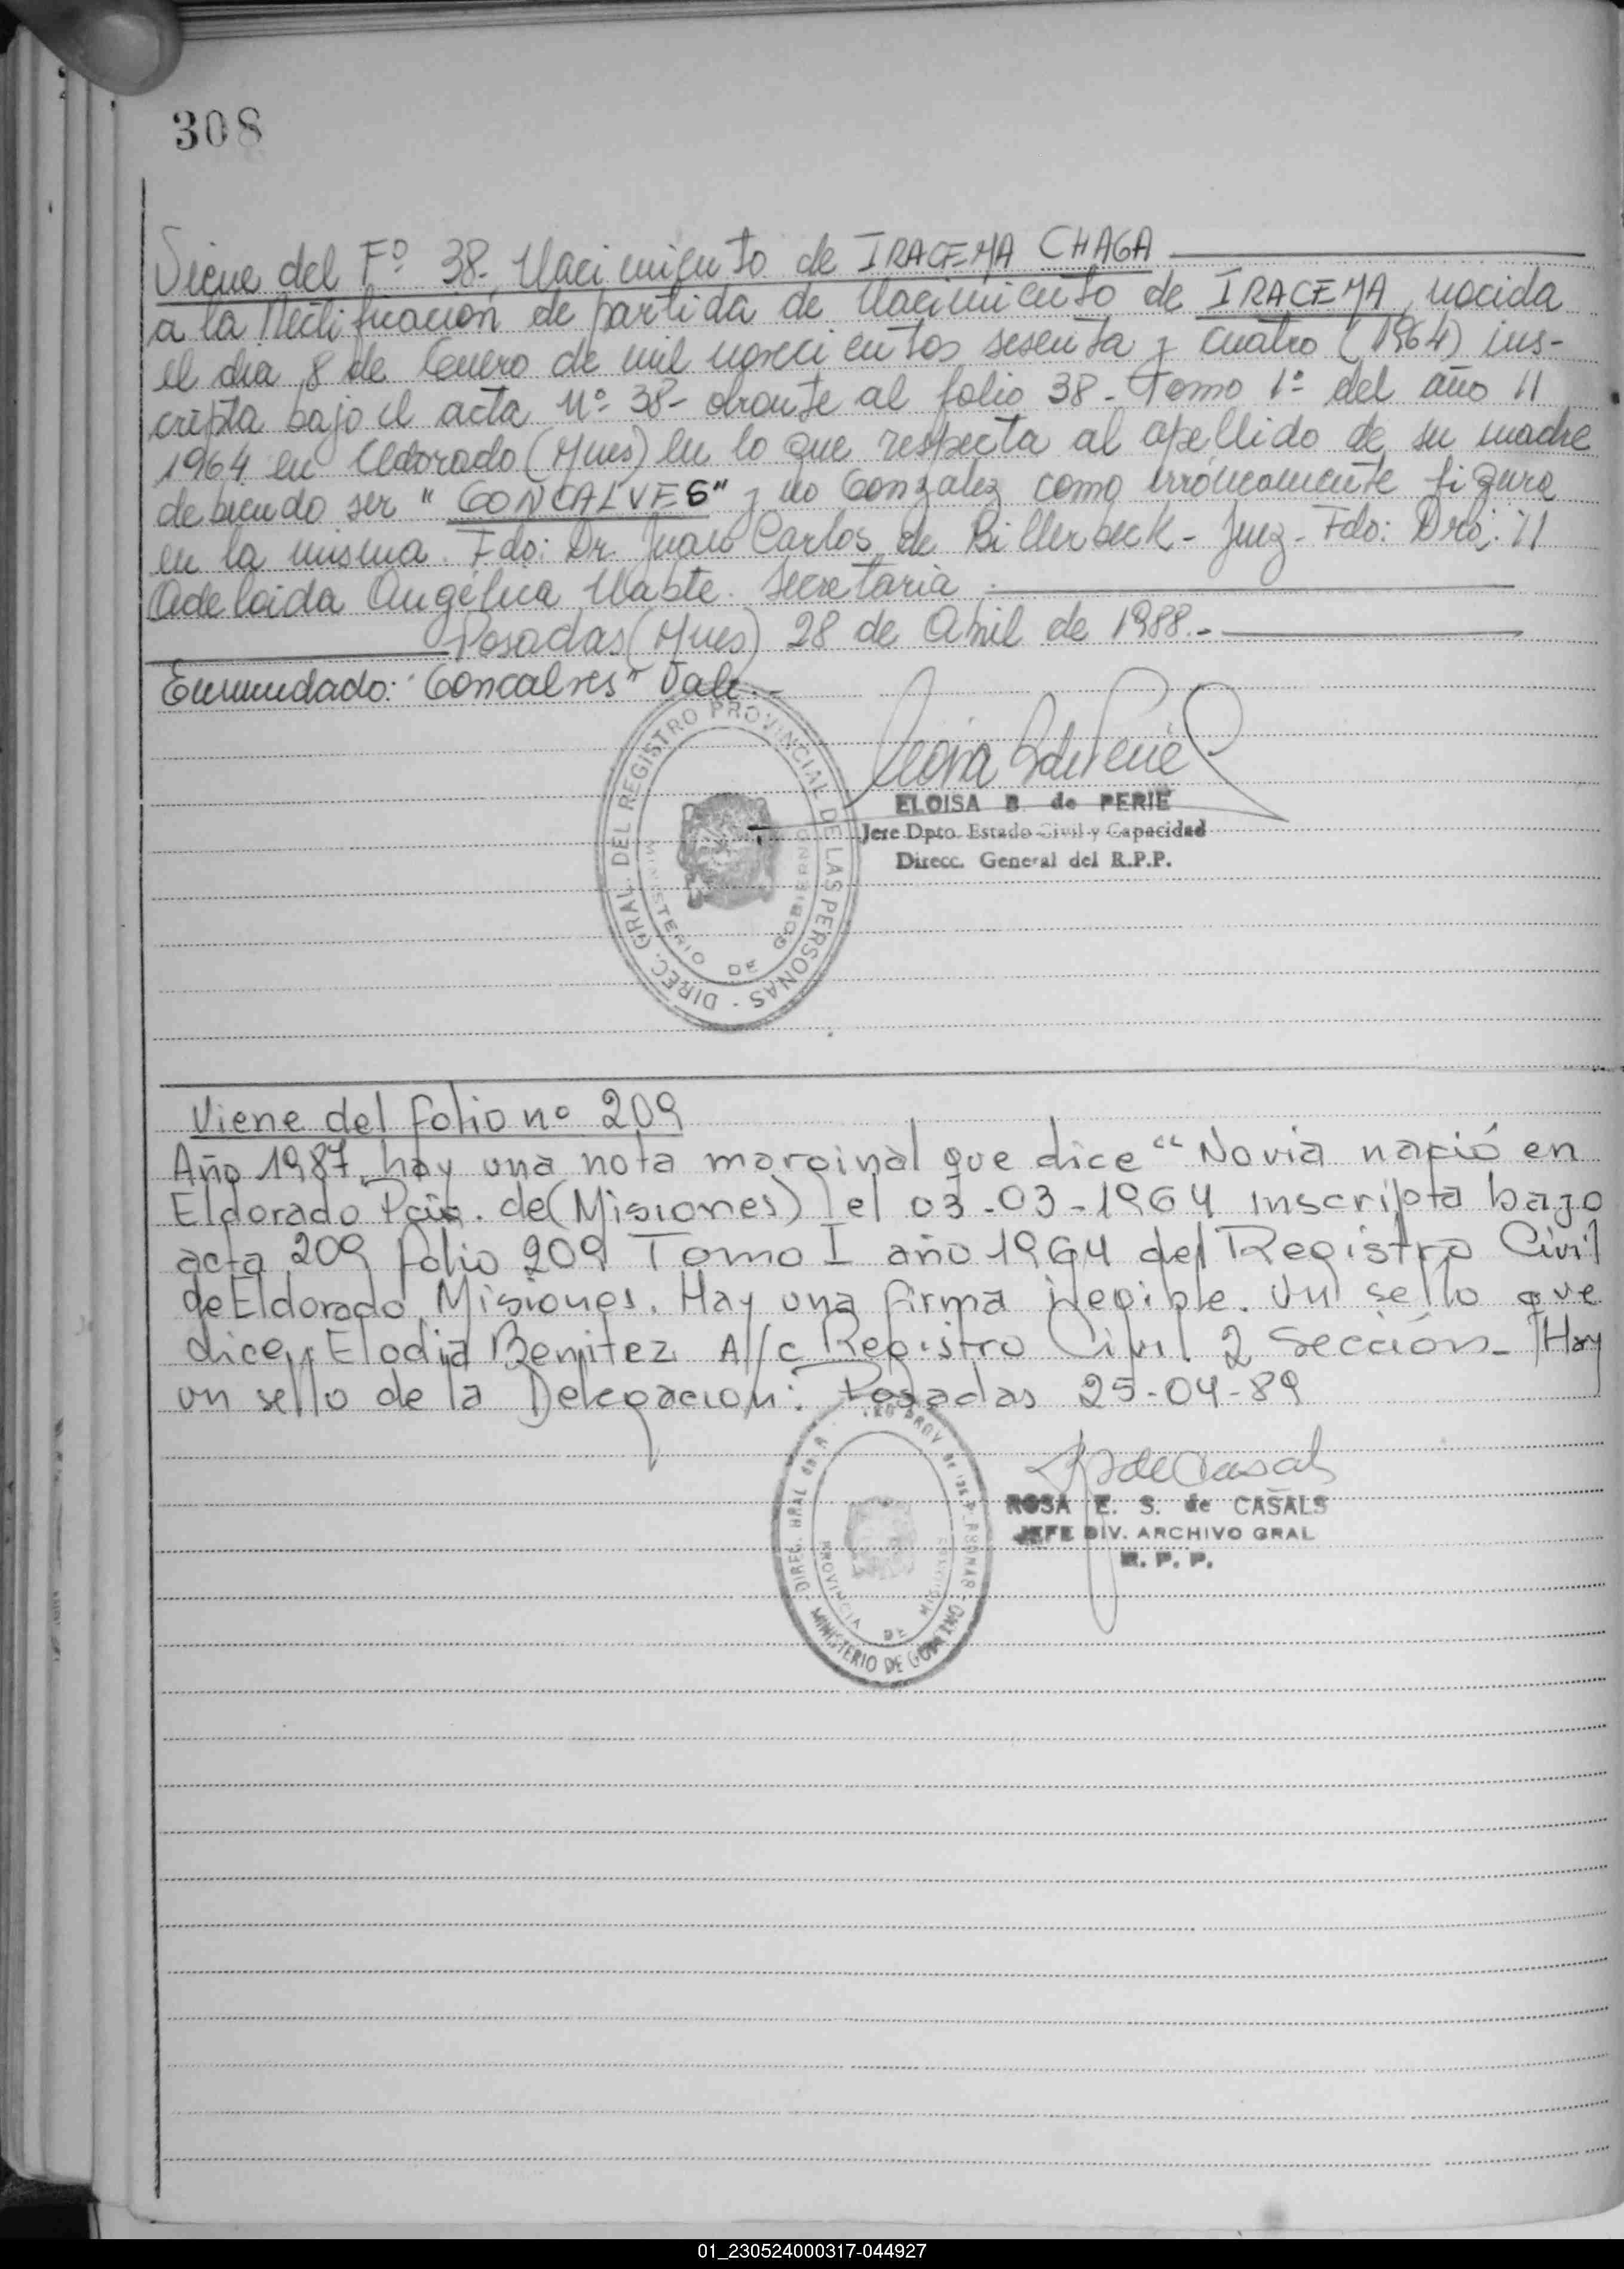 308
Viene del Fº 38. Nacimiento de IRACEMA CHAGA
a la Rectificación de partida de Nacimiento de IRACEMA, nacida
el dia 8 de Enero de mil novecientos sesenta y cuatro (1964) ins-
cripta bajo el acta Nº 38- obrante al folio 38 - Tomo 1º del año //
1964 en Eldorado (Mnes) en lo que respecta al apellido de su madre
debiendo ser "GONCALVES" y no Gonzalez como erróneamente figura
en la misma. Fdo: Dr. Juan Carlos de Billerbeck - Juez - Fdo: Dra: //
Adelaida Angélica Secretaria
Posadas (Mnes) 28 de Abril de 1988.-
Enmendado: "Goncalves" Vale.-
DIREC. GRAL. DEL REGISTRO PROVINCIAL DE LAS PERSONAS -
MINISTERIO DE GOBIERNO
ELOISA B. de PERIE
Jefe Dpto. Estado Civil y Capacidad
Direcc. General del R.P.P.
Viene del folio nº 209
Año 1987, hay una nota marginal que dice "Novia nació en
Eldorado Pcia. de (Misiones) el 03-03-1964 inscripta bajo
acta 209 folio 209 Tomo I año 1964 del Registro Civil
de Eldorado, Misiones. Hay una firma ilegible. Un sello que
dice, Elodia Benitez A/c Registro Civil 2 Sección - Hay
un sello de la Delegación: Posadas 25-04-89
DIREC. GRAL de PROV de las PERSONAS
PROVINCIA DE MISIONES
MINISTERIO DE GOBIERNO
de Casals
ROSA E. S. de CASALS
JEFE DIV. ARCHIVO GRAL
R. P. P.
01_230524000317-044927